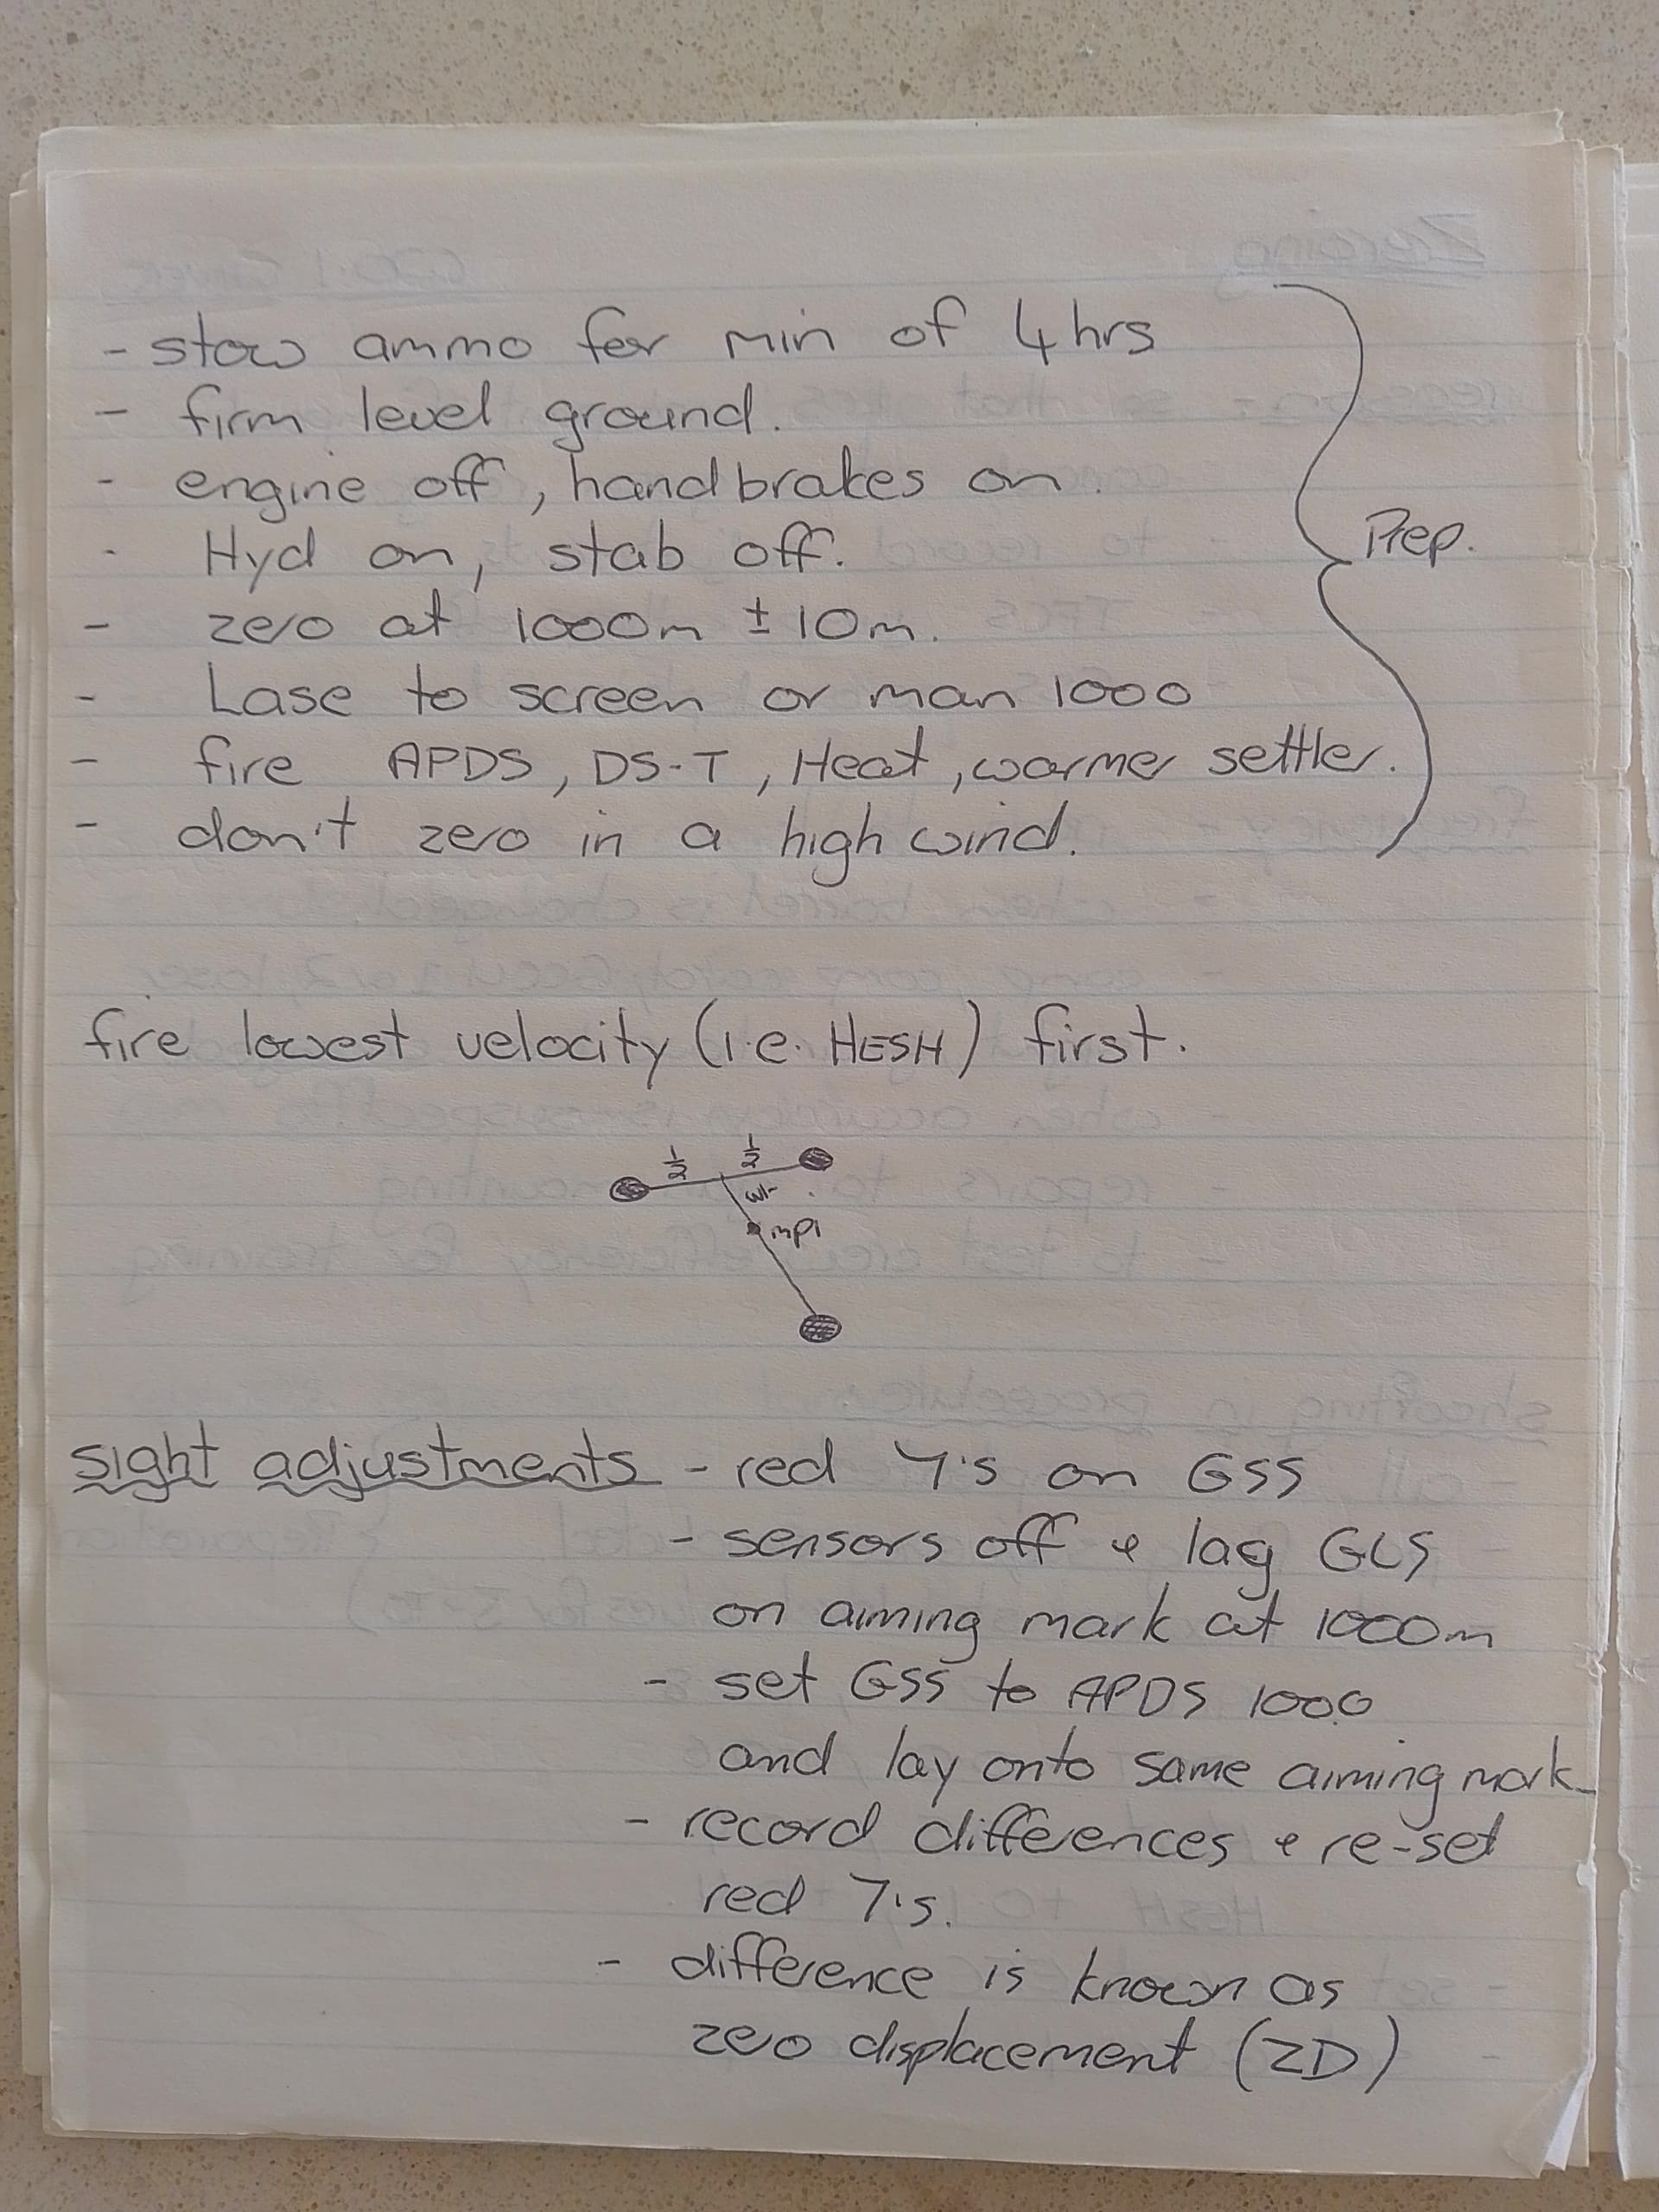 - stow ammo for min of 4hrs
- firm level ground.
- engine off, handbrakes on.
- Hyd on, stab off.
Prep.
- zero at 1000m ± 10m.
- Lase to screen or man 1000
- fire APDS, DS-T, Heat, warmer settler.
- don't zero in a high wind.
fire lowest velocity (i.e. HESH) first.
1/2 1/2
mpi
sight adjustments - red 7's on GSS
- sensors off & lag GLS
on aiming mark at 1000m
- set GSS to APDS 1000
and lay onto same aiming mark
- record differences & re-set
red 7's.
- difference is known as
zero displacement (ZD)